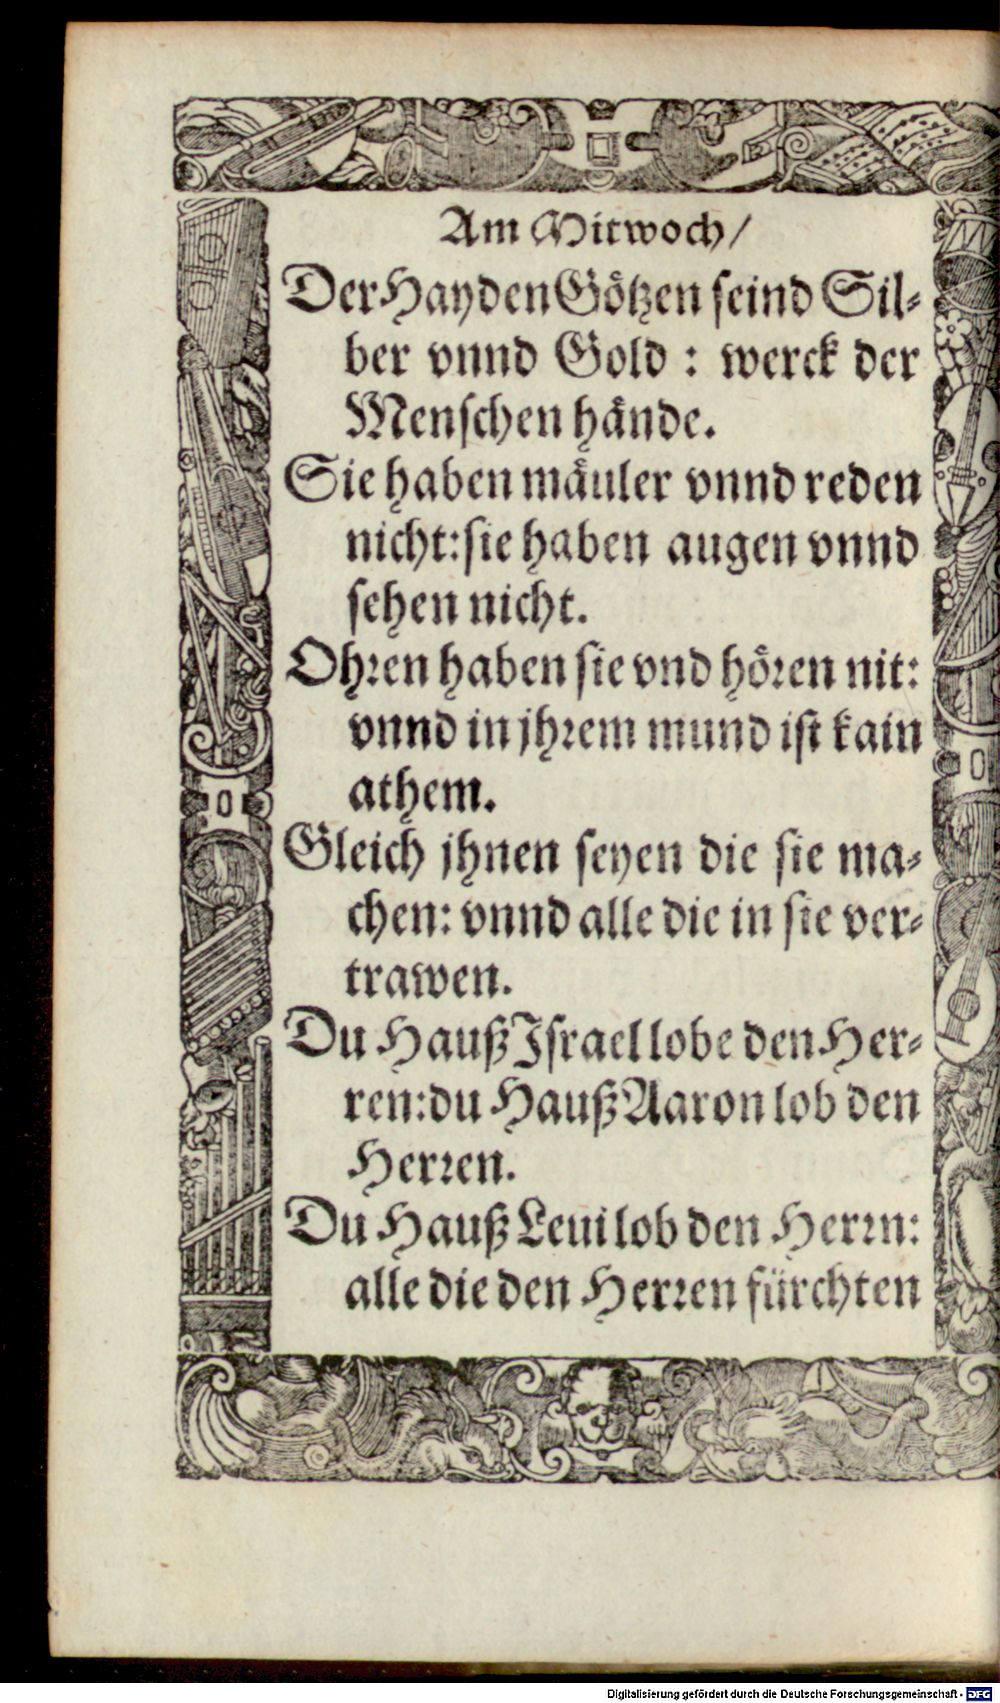 Am Mitwoch/
Der Hayden Götzen seind Sil-
ber vnnd Gold : werck der
Menschen hände.
Sie haben mäuler vnnd reden
nicht: sie haben augen vnnd
sehen nicht.
Ohren haben sie vnd hören nit:
vnnd in jhrem mund ist kain
athem.
Gleich jhnen seyen die sie ma-
chen: vnnd alle die in sie ver-
trawen.
Du Hauß Israel lobe den Her-
ren: du Hauß Aaron lob den
Herren.
Du Hauß Leui lob den Herrn:
alle die den Herren fürchten
Digitalisierung gefördert durch die Deutsche Forschungsgemeinschaft - DFG